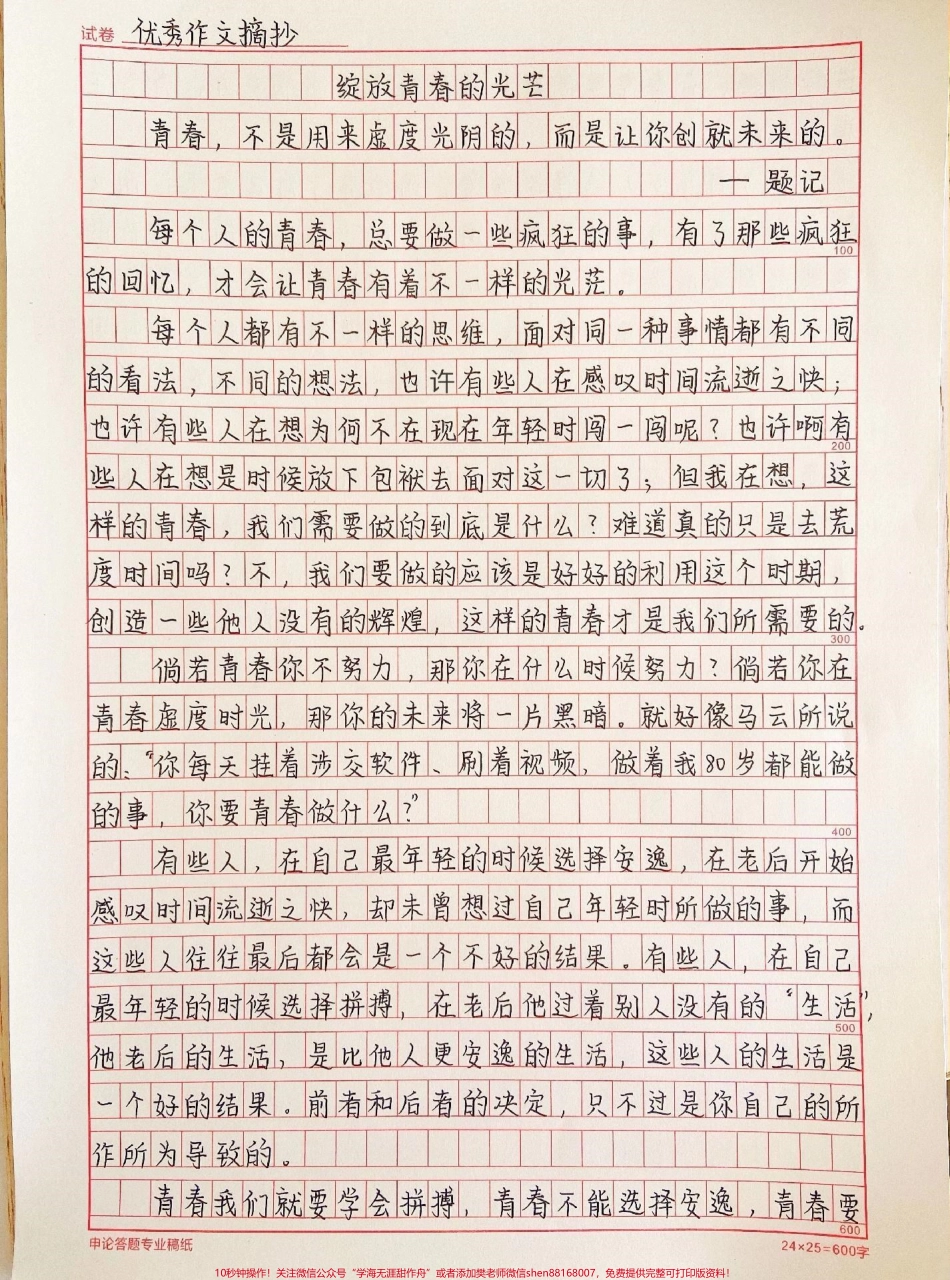 试卷 优秀作文摘抄
绽放青春的光芒
青春，不是用来虚度光阴的，而是让你创就未来的。
— 题记
每个人的青春，总要做一些疯狂的事，有了那些疯狂
100
的回忆，才会让青春有着不一样的光芒。
每个人都有不一样的思维，面对同一种事情都有不同
的看法，不同的想法，也许有些人在感叹时间流逝之快；
也许有些人在想为何不在现在年轻时闯一闯呢？也许啊有
200
些人在想是时候放下包袱去面对这一切了；但我在想，这
样的青春，我们需要做的到底是什么？难道真的只是去荒
度时间吗？不，我们要做的应该是好好的利用这个时期，
创造一些他人没有的辉煌，这样的青春才是我们所需要的。
300
倘若青春你不努力，那你在什么时候努力？倘若你在
青春虚度时光，那你的未来将一片黑暗。就好像马云所说
的：“你每天挂着涉交软件、刷着视频，做着我80岁都能做
的事，你要青春做什么？”
400
有些人，在自己最年轻的时候选择安逸，在老后开始
感叹时间流逝之快，却未曾想过自己年轻时所做的事，而
这些人往往最后都会是一个不好的结果。有些人，在自己
最年轻的时候选择拼搏，在老后他过着别人没有的“生活”，
500
他老后的生活，是比他人更安逸的生活，这些人的生活是
一个好的结果。前者和后者的决定，只不过是你自己的所
作所为导致的。
青春我们就要学会拼搏，青春不能选择安逸，青春要
600
申论答题专业稿纸 24×25=600字
10秒钟操作！关注微信公众号“学海无涯甜作舟”或者添加樊老师微信shen88168007，免费提供完整可打印版资料！